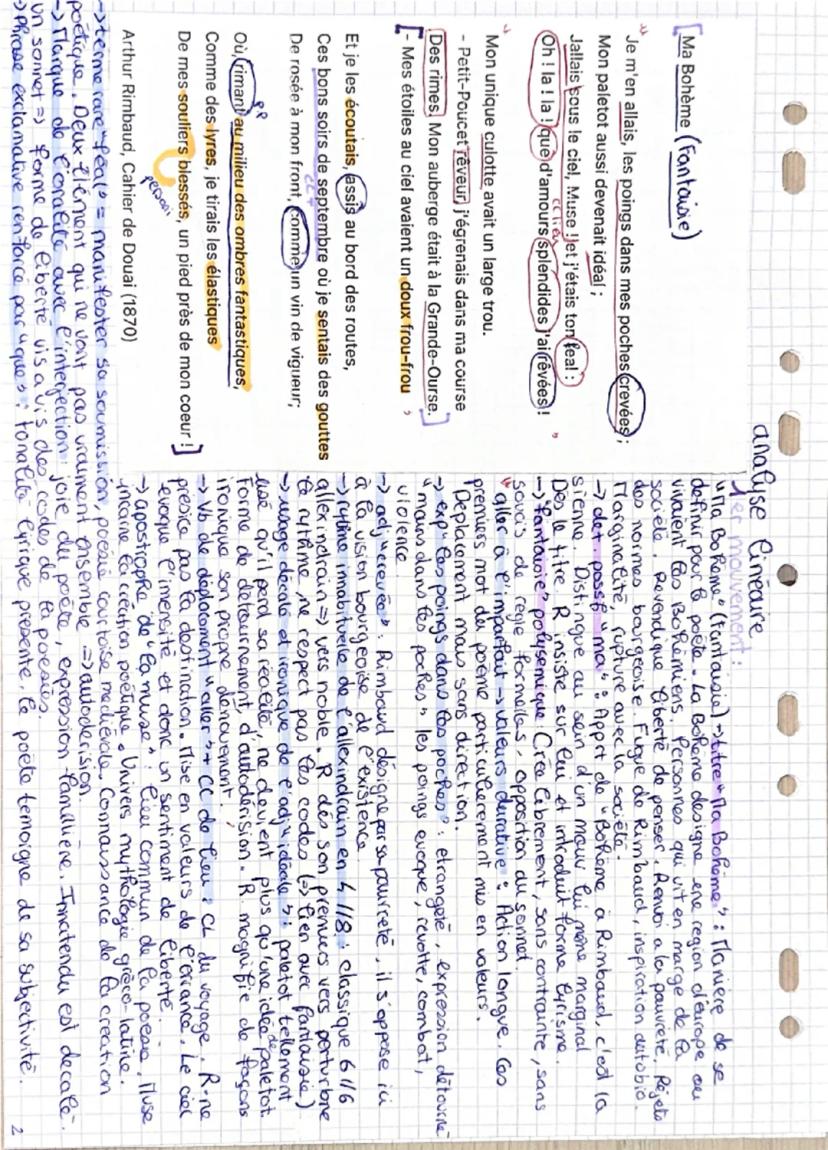 analyse linéaire
1er mouvement :
Ma Bohème (Fantaisie)
Je m'en allais, les poings dans mes poches crevées ;
Mon paletot aussi devenait idéal ;
J'allais sous le ciel, Muse ! et j'étais ton féal :
Oh ! la ! la ! que d'amours splendides j'ai rêvées !
Mon unique culotte avait un large trou.
- Petit-Poucet rêveur, j'égrenais dans ma course
Des rimes. Mon auberge était à la Grande-Ourse.
- Mes étoiles au ciel avaient un doux frou-frou
Et je les écoutais, assis au bord des routes,
Ces bons soirs de septembre où je sentais des gouttes
De rosée à mon front, comme un vin de vigueur;
Où, rimant au milieu des ombres fantastiques,
Comme des lyres, je tirais les élastiques
De mes souliers blessés, un pied près de mon coeur !
Arthur Rimbaud, Cahier de Douai (1870)
"Ma Bohème" (Fantaisie) → titre "Ma Bohème" : Manière de se
definir pour le poète. La Bohème designe une region d'europe ou
vivaient les Bohémiens. Personnes qui vit en marge de la
société. Revendique liberté de penser. Renvoi a la pauvreté. Rejets
des normes bourgeoise. Fugue de Rimbaud, inspiration autobio.
Marginalité, rupture avec la société.
→ det possf "ma" : Apprt de "Bohème a Rimbaud, c'est la
sienne. Distingue au sein d'un mouv lui même marginal
Dès le titre, R insiste sur lui et introduit forme lyrisme.
→ "Fantaisie" polysemique Crée librement, sans contrainte, sans
soucis de règle formelles, opposition au sonnet.
"aller à l'imparfait → valeurs durative : Action longue. Ces
premiers mot du poème particulierement mis en valeurs.
Deplacement mais sans direction.
→ exp "les poings dans les poches" : etrangeté, expression détourné
"mains dans les poches" les poings evoque, revolte, combat,
violence
→ adj "crevée" : Rimbaud désigne par sa pauvreté, il s'oppose ici
à la vision bourgeoise de l'existence.
→ rythme innabituelle de l'allexindrain en 4//8 : classique 6//6
allexindrain => vers noble. R dès son premiers vers perturbne
le rythme, ne respect pas les codes (=> lien avec fantaisie)
→ usage décalé et ironique de l'adj "idéale" : paletot tellement
usé qu'il perd sa réalité, ne devient plus qu'une idée de paletot
Forme de détournement, d'autodérision. R. magnifie de façons
ironique son propre dénouement.
→ Vb de deplacement "aller" + CC de lieu : CL du voyage. R ne
précise pas la destination. Mise en valeurs de l'errance. Le ciel
evoque l'imensité et donc un sentiment de liberté.
→ apostrophe de "la muse" : lieu commun de la poésie, Muse
incarne la création poétique. Univers mythologie gréco-latine.
→ terme rare "féal" = manifester sa soumission, poésie courtoise mediévale. Connaissance de la creation
poétique. Deux élément qui ne vont pas vraiment ensemble => autodérision.
→ Marque de l'oralité avec l'interjection : joie du poète, expression famillière. Innatendu est decalé
un sonnet => forme de liberté vis a vis des codes de la poésies.
→ phrase exclamative renforcé par "que" : tonalité lyrique presente, le poète temoigne de sa subjectivité.
2